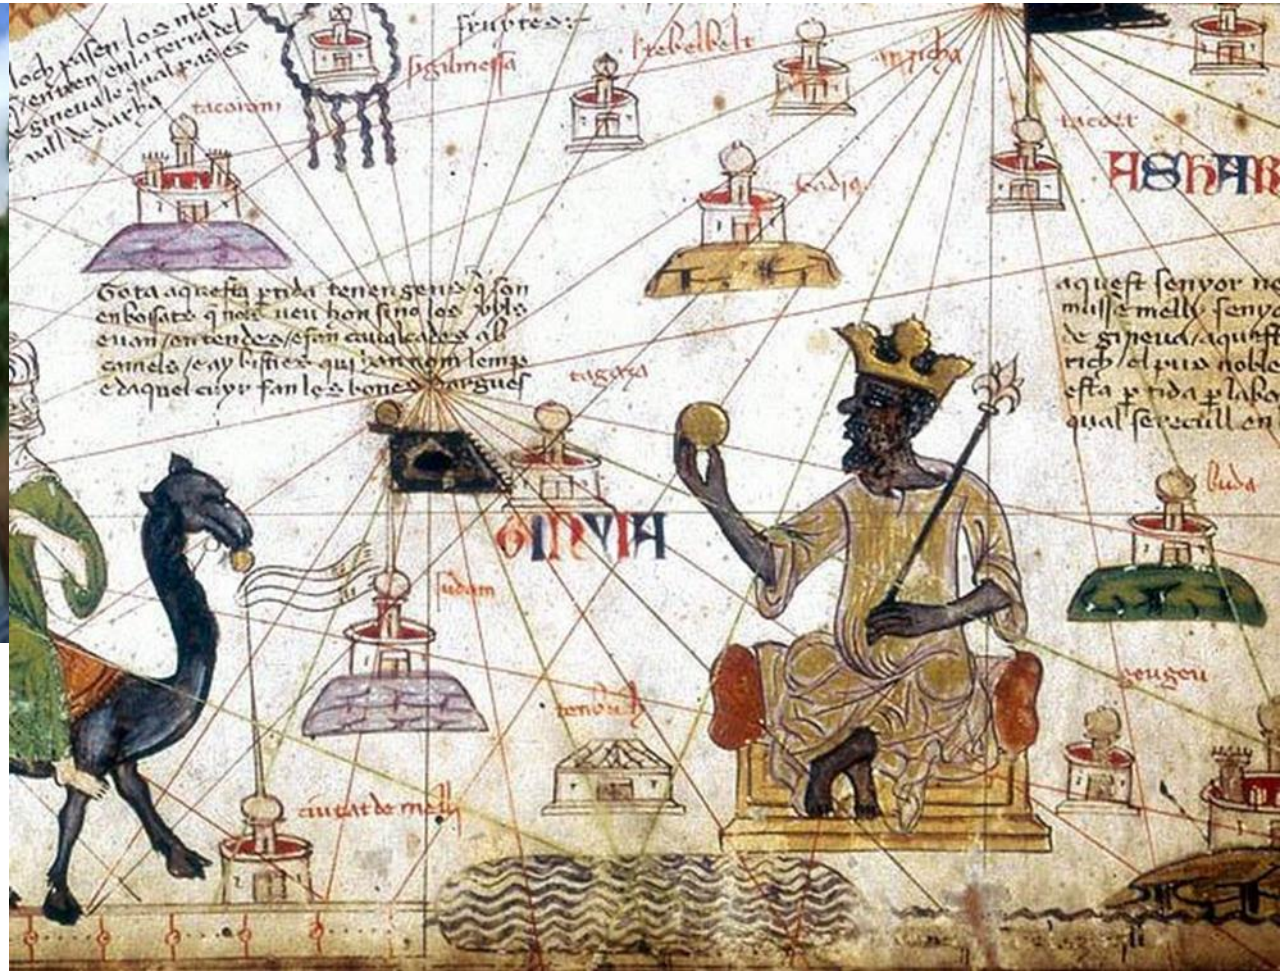 loch pasen los mer
entren en la terra del
gineua lo qual pas es
vall de darha
fruytes:-
sigilmessa
tacorom
tacort
ASHAR
Tota aquesta partida tenen gens q son
enbossats q nols veu hom sino los uyls
e van en tendes e fan caualcades ab
camels e ay bisties qui han nom lemp
e daquel cuyr fan les bones dargues
tagaza
aquest senyor ne
musse melly senyo
de gineua aquest
rich el pus noble
esta partida per labo
qual se recull en
buda
GINYIA
sudam
tenbuch
geugeu
ciutat de melly